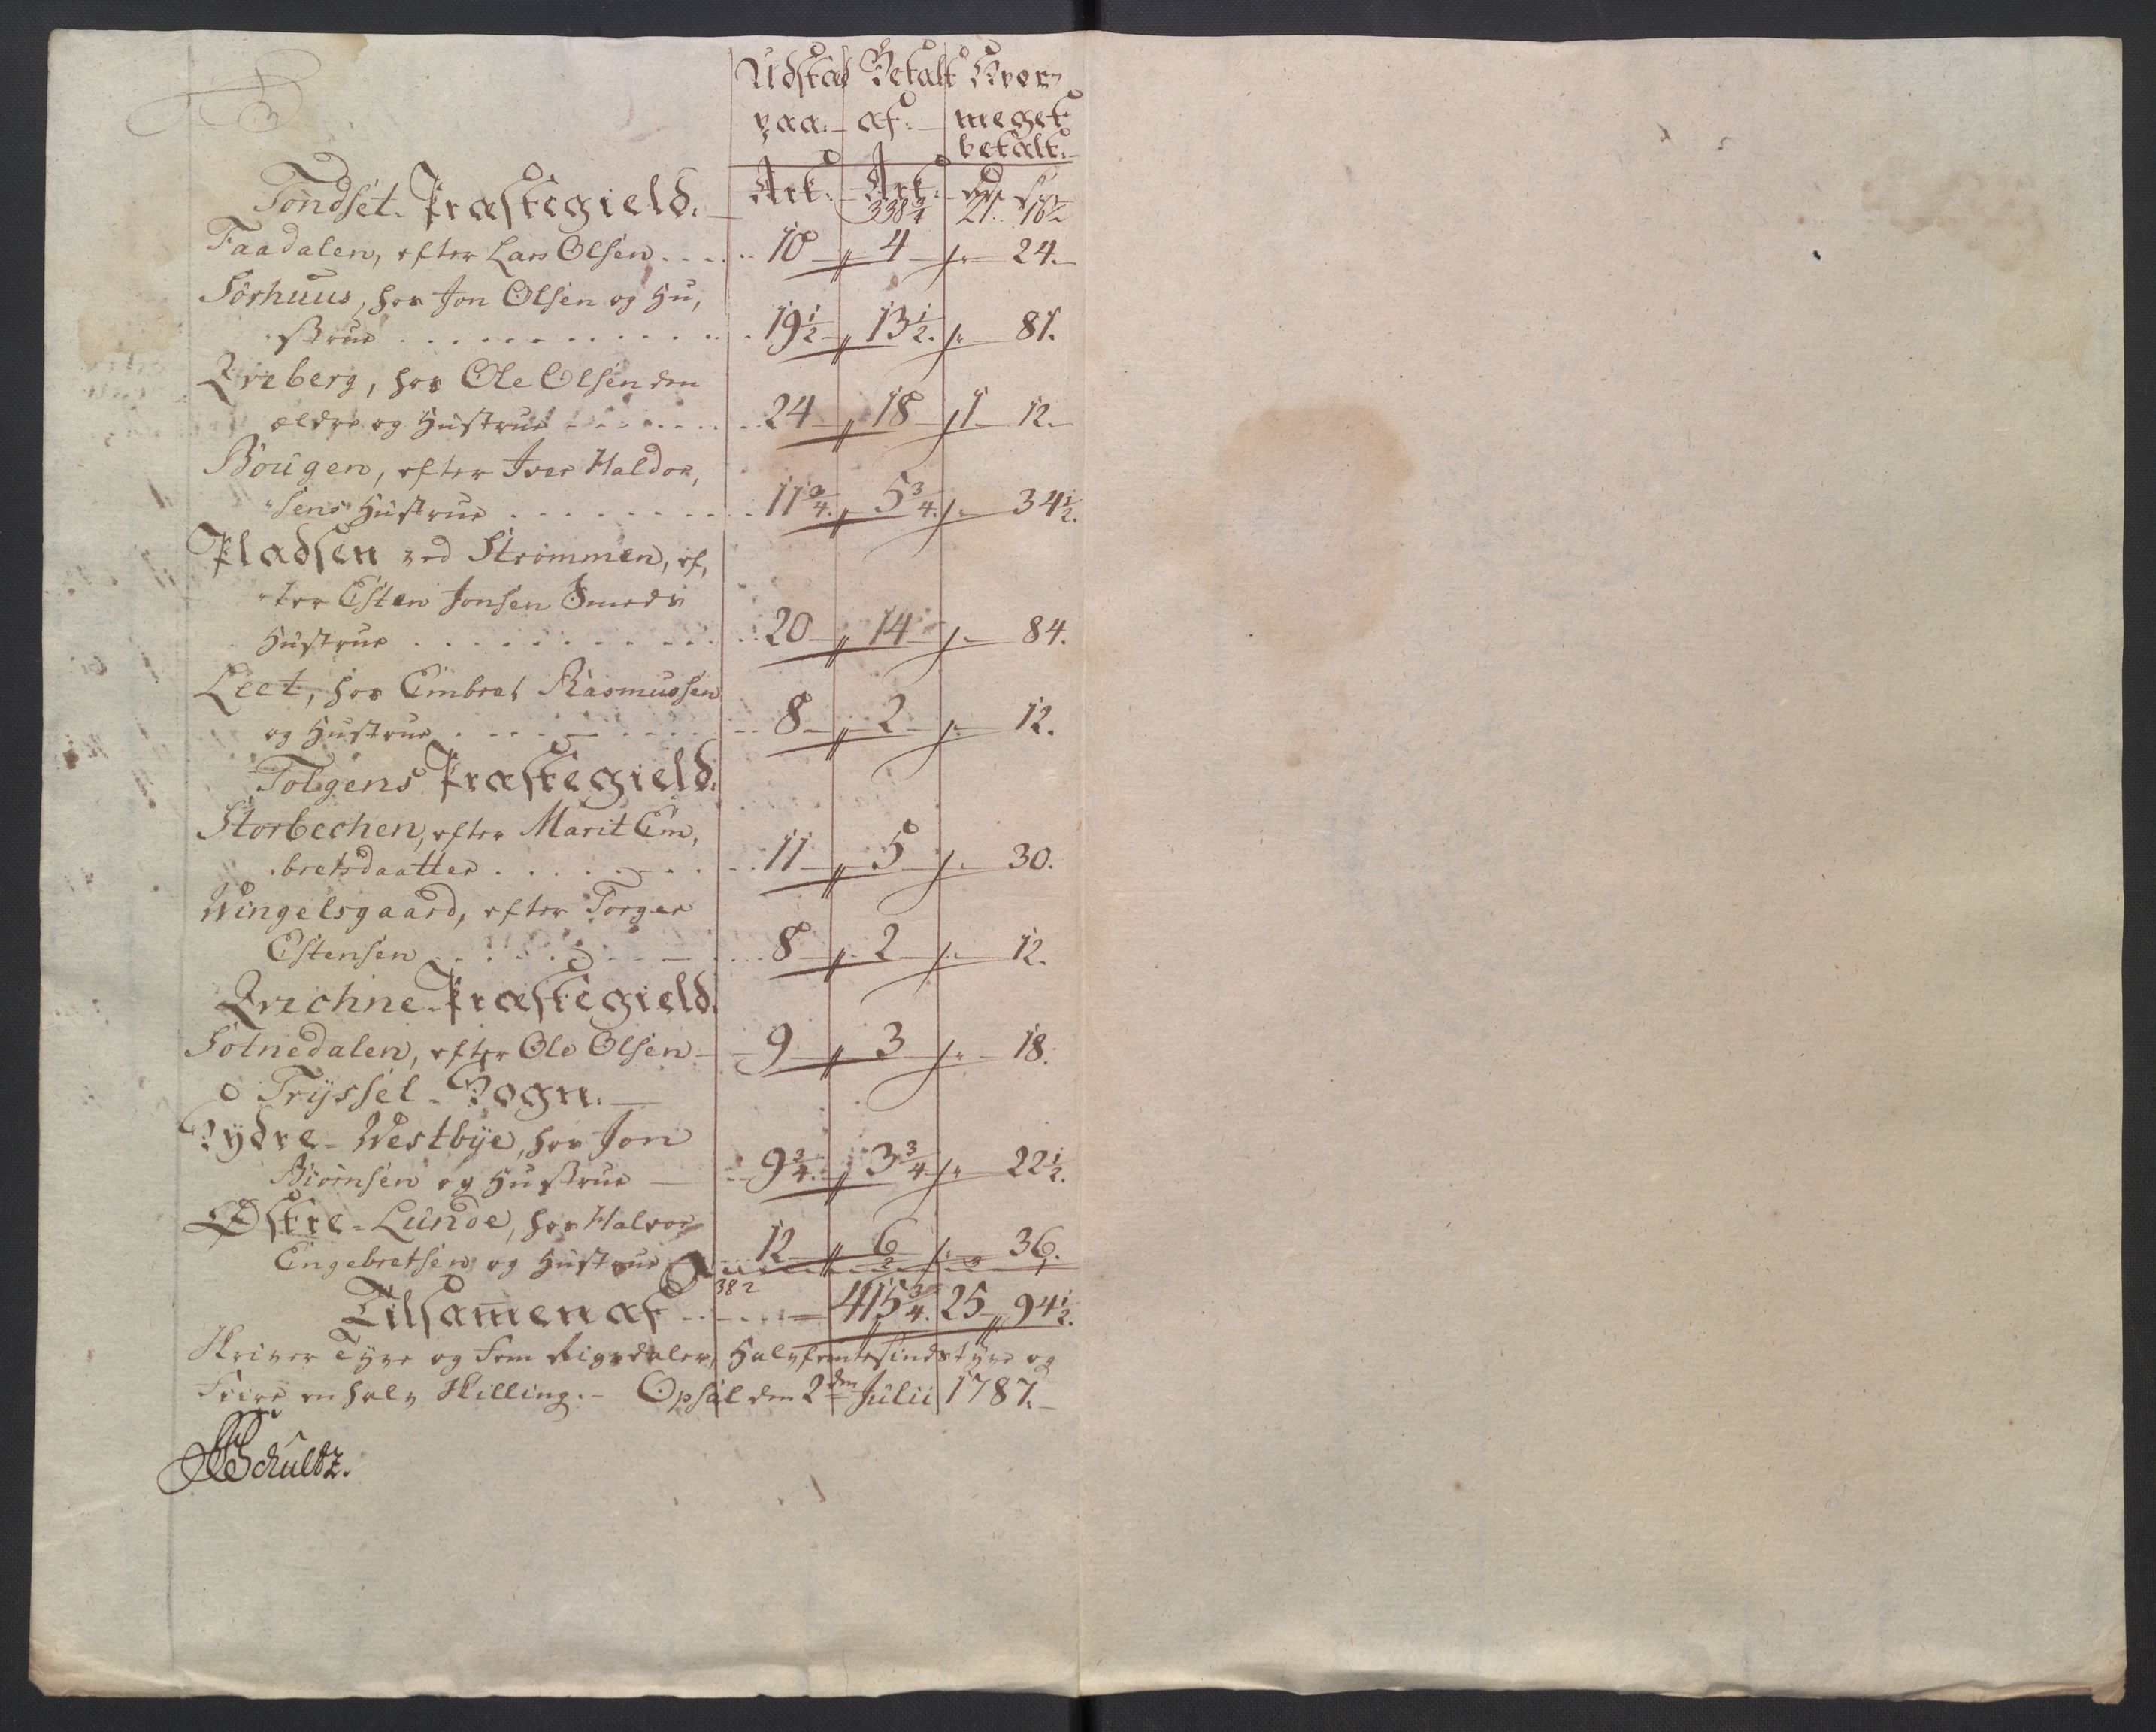 Udstæd Betalt Hvor
paa. af. meget
betalt.
Tøndset Præstegield. Ark. Ark. Rdr. s
338 3/4 21. 16 1/2
Faadalen, efter Lars Olsen 10 4 " 24.
Sørhuus, hos Jon Olsen og Hu,
strue 19 1/2 13 1/2. " 81.
Qveberg, hos Ole Olsen den
ældre og Hustrue 24 18 1 12.
Bougen, efter Iver Haldor,
sens Hustrue 11 3/4. 5 3/4. " 34 1/2.
Pladsen ved Strømmen, ef,
ter Esten Jonsen Smeds
Hustrue 20 14 " 84.
Leet, hos Embret Rasmussen
og Hustrue 8 2 " 12.
Tolgens Præstegield.
Storbechen, efter Marit Em,
bretsdaatter 11 5 " 30.
Wingelsgaard, efter Torger
Estensen 8 2 " 12.
Qvichne Præstegield.
Søtnedalen, efter Ole Olsen 9 3 " 18.
Tryssel Sogn.
Nydre Westbye, hos Jon
Biørnsen og Hustrue 9 3/4. 3 3/4 " 22 1/2.
Østre Lunde, hos Halvor
Engebretsen og Hustrue 12 6 " 36.
382
Tilsamen af 415 3/4. 25 94 1/2.
Skriver Tyve og Fem Rigsdaler, Halvfemtesindstyve og
Fiire en halv Skilling. Opsal den 2den Julii 1787.
Schultz.